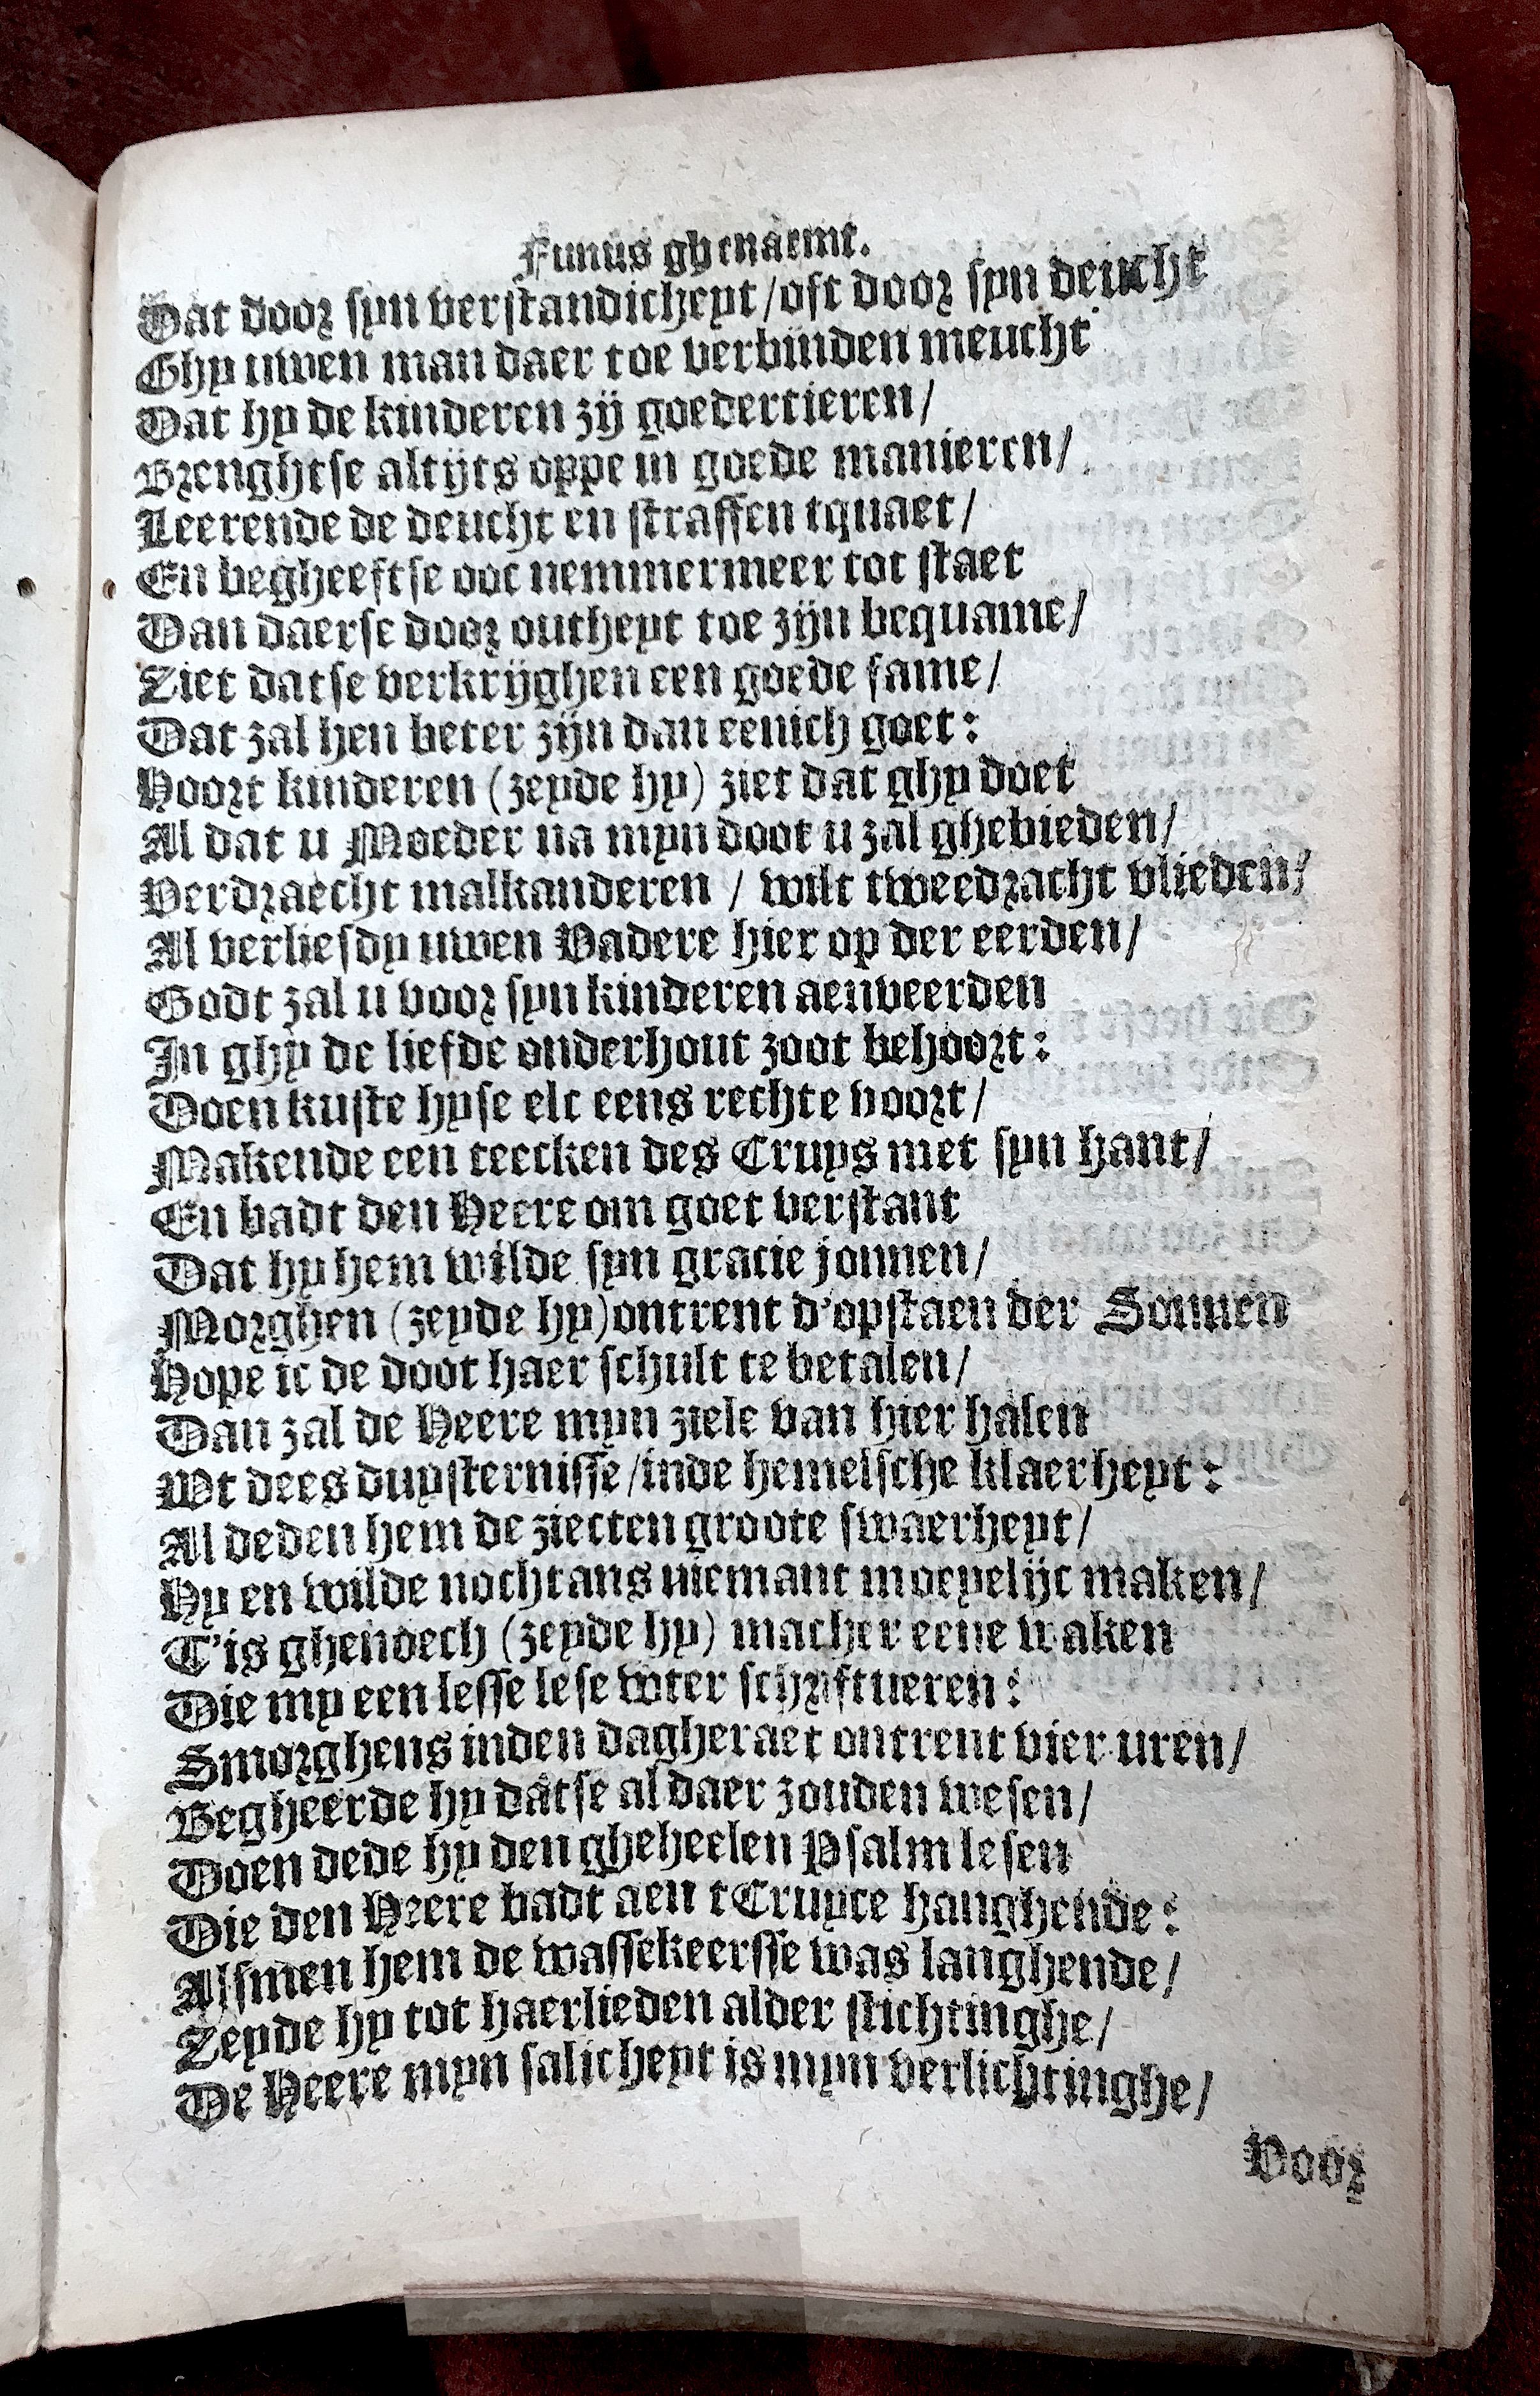 Funus ghenaemt.
Dat door syn verstandicheyt/oft door syn deucht
Ghy uwen man daer toe verbinden meucht
Dat hy de kinderen zij goedertieren/
Brenghtse altijts oppe in goede manieren/
Leerende de deucht en straffen tquaet/
En begheeftse ooc nemmermeer tot staet
Dan daerse door outheyt toe zijn bequame/
Ziet datse verkrijghen een goede fame/
Dat zal hen beter zijn dan eenich goet:
Hoort kinderen (zeyde hy) ziet dat ghy doet
Al dat u Moeder na myn doot u zal ghebieden/
Verdraecht malkanderen / wilt tweedracht vlieden/
Al verliesdy uwen Vadere hier op der eerden/
Godt zal u voor syn kinderen aenveerden
In ghy de liefde onderhout zoot behoort:
Doen kuste hyse elc eens rechte voort/
Makende een teecken des Cruys met syn hant/
En badt den Heere om goet verstant
Dat hy hem wilde syn gracie jonnen/
Morghen (zeyde hy) ontrent d'opstaen der Sonnen
Hope ic de doot haer schult te betalen/
Dan zal de Heere myn ziele van hier halen
Wt dees duysternisse/inde hemelsche klaerheyt:
Al deden hem de ziecten groote swaerheyt/
Hy en wilde nochtans niemant moeyelijc maken/
T'is ghenoech (zeyde hy) macher eene waken
Die my een lesse lese wter schriftueren:
Smorghens inden dagheraet ontrent vier uren/
Begheerde hy datse al daer zouden wesen/
Doen dede hy den gheheelen Psalm lesen
Die den Heere badt aen tCruyce hanghende:
Alsmen hem de wassekeersse was langhende/
Zeyde hy tot haerlieden alder stichtinghe/
De Heere myn salicheyt is myn verlichtinghe/
Voor